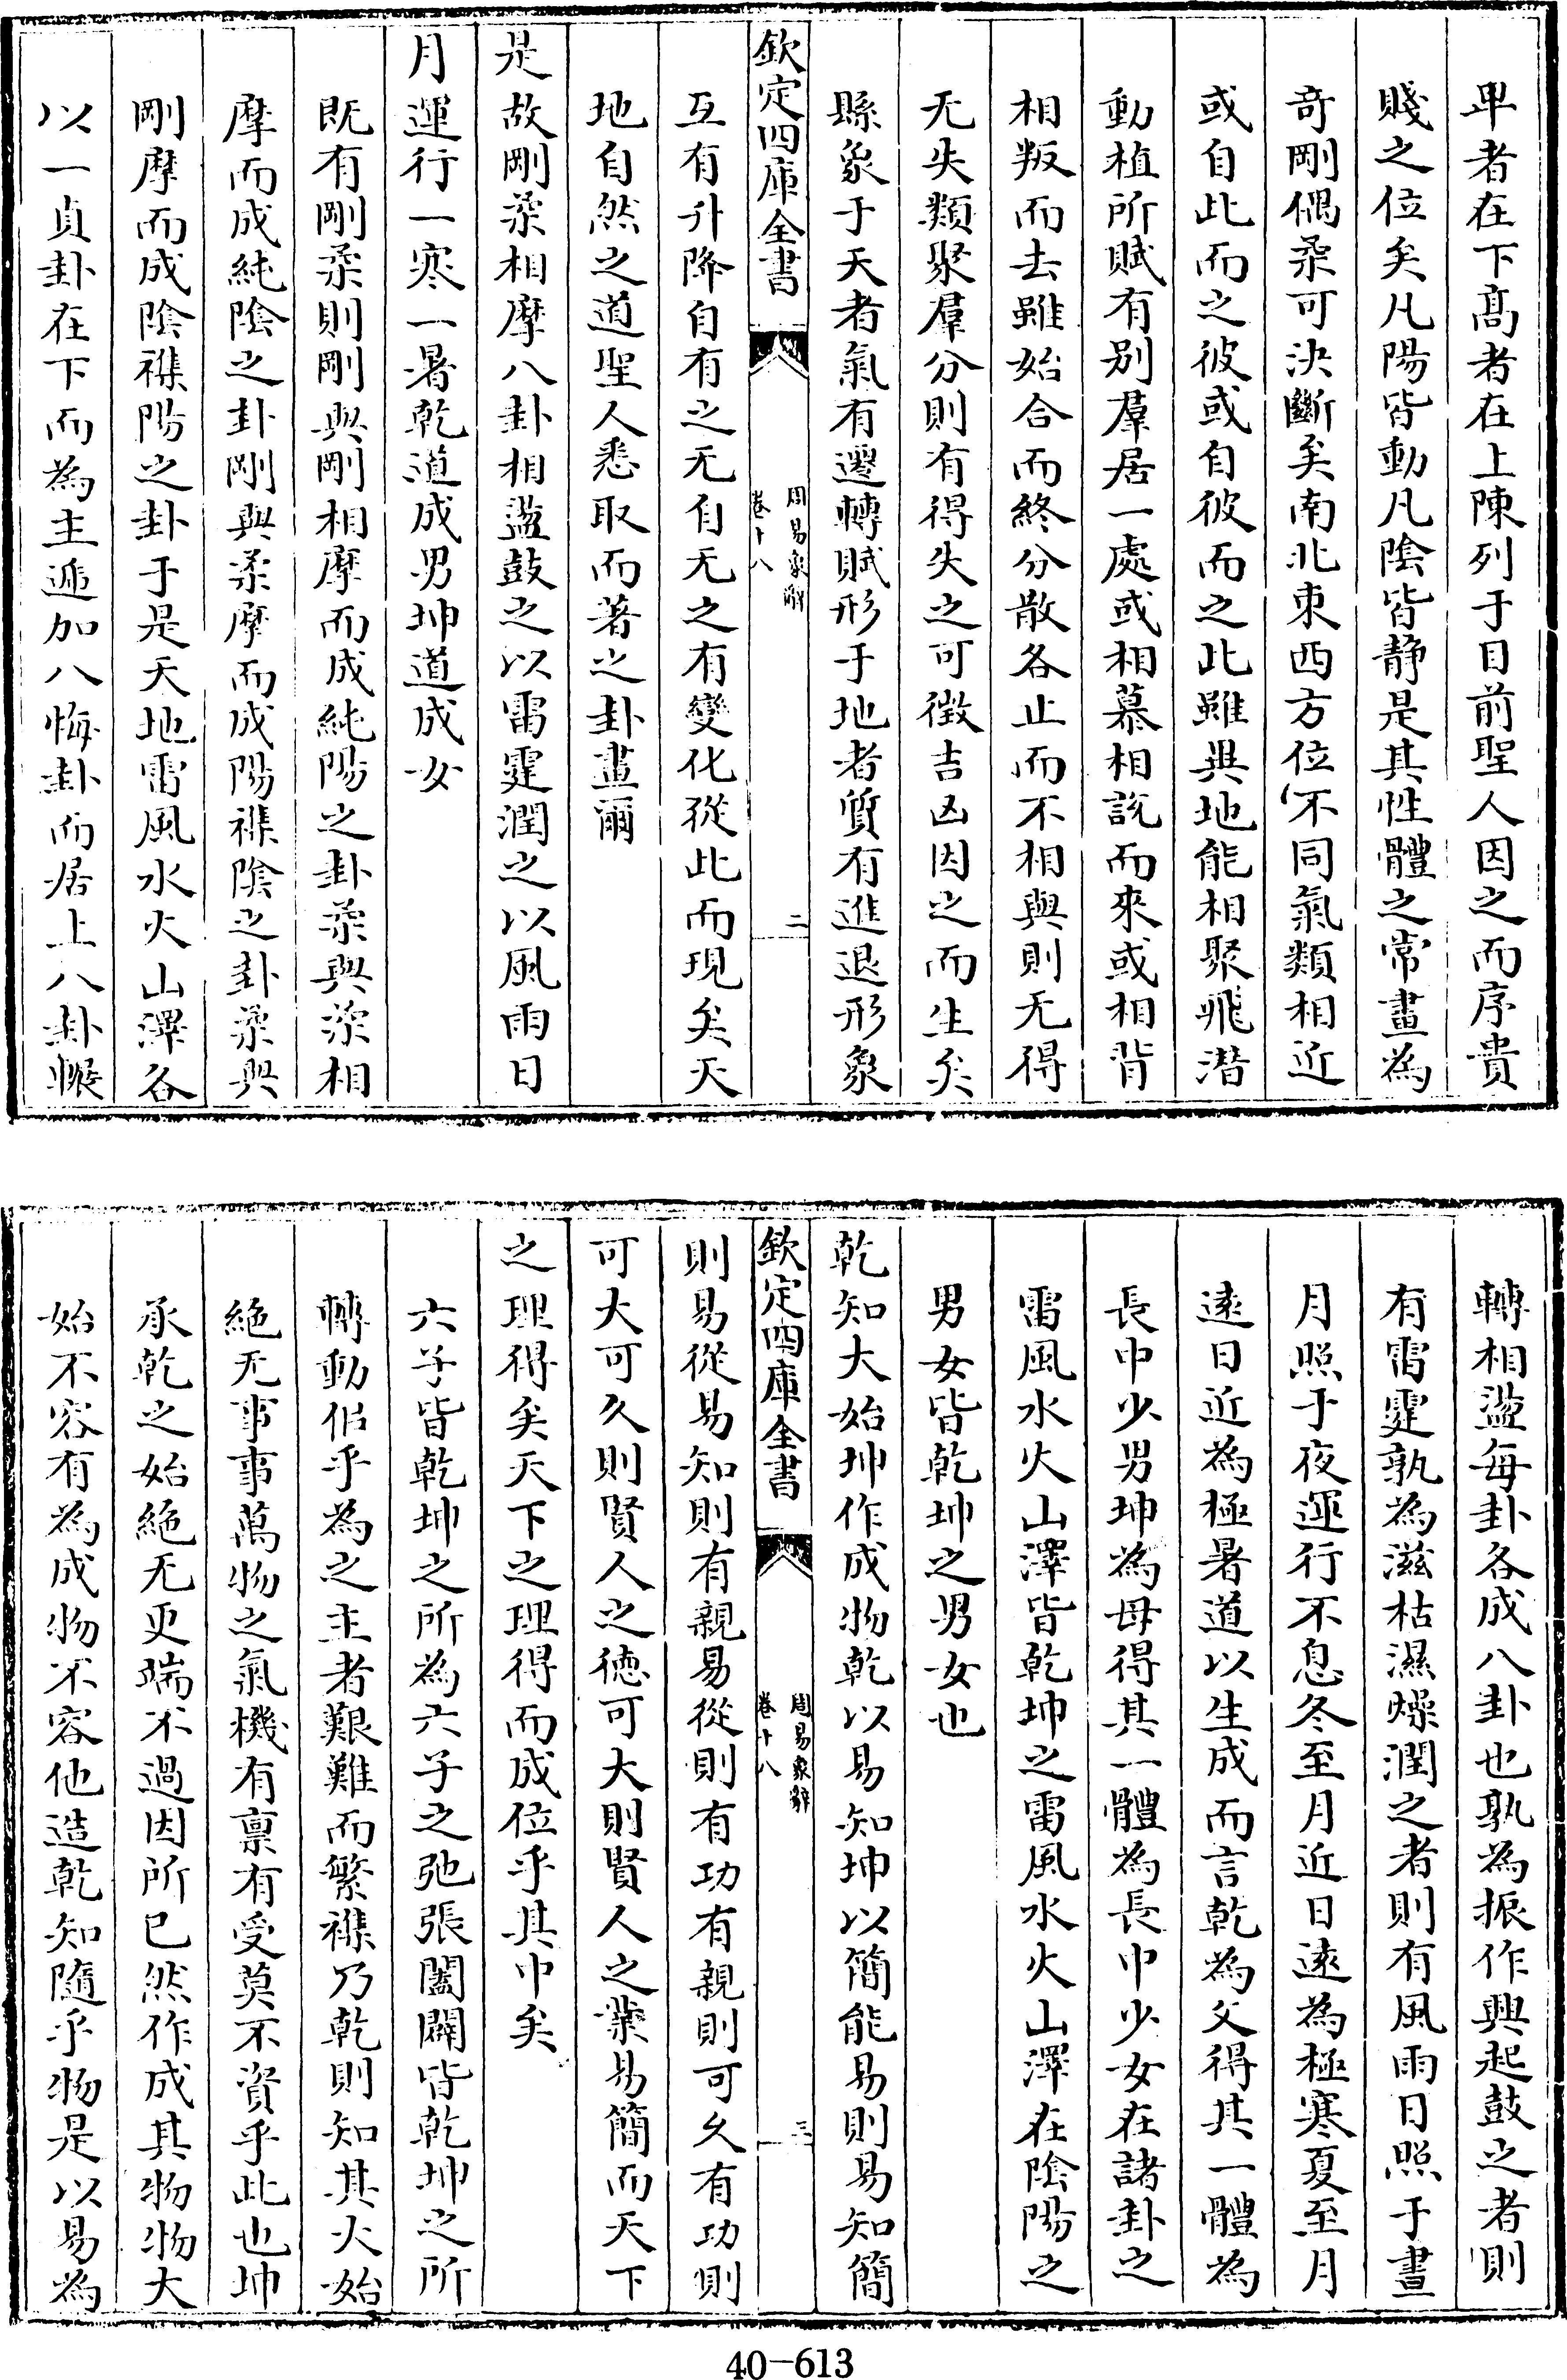 卑者在下髙者在上陳列于目前聖人因之而序貴
賤之位矣凡陽皆動凡陰皆静是其性體之常畫為
竒剛偶柔可決斷矣南北東西方位不同氣類相近
或自此而之彼或自彼而之此雖異地能相聚飛潛
動植所賦有别羣居一處或相慕相説而來或相背
相叛而去雖始合而終分散各止而不相與則无得
无失類聚羣分則有得失之可徴吉凶因之而生矣
縣象于天者氣有遷轉賦形于地者質有進退形象
欽定四庫全書
周易象辭
卷十八
二
互有升降自有之无自无之有變化從此而現矣天
地自然之道聖人悉取而著之卦畫爾
是故剛柔相摩八卦相盪鼓之以雷霆潤之以風雨日
月運行一寒一暑乾道成男坤道成女
既有剛柔則剛與剛相摩而成純陽之卦柔與柔相
摩而成純陰之卦剛與柔摩而成陽襍陰之卦柔與
剛摩而成陰襍陽之卦于是天地雷風水火山澤各
以一貞卦在下而為主遞加八悔卦而居上八卦輾
轉相盪每卦各成八卦也孰為振作興起鼓之者則
有雷霆孰為滋枯濕燥潤之者則有風雨日照于晝
月照于夜運行不息冬至月近日逺為極寒夏至月
逺日近為極暑道以生成而言乾為父得其一體為
長中少男坤為母得其一體為長中少女在諸卦之
雷風水火山澤皆乾坤之雷風水火山澤在陰陽之
男女皆乾坤之男女也
乾知大始坤作成物乾以易知坤以簡能易則易知簡
欽定四庫全書
周易象辭
卷十八
三
則易從易知則有親易從則有功有親則可久有功則
可大可久則賢人之徳可大則賢人之業易簡而天下
之理得矣天下之理得而成位乎其中矣
六子皆乾坤之所為六子之弛張闔闢皆乾坤之所
轉動伹乎為之主者艱難而繁襍乃乾則知其大始
絶无事事萬物之氣機有禀有受莫不資乎此也坤
承乾之始絶无更端不過因所已然作成其物物大
始不容有為成物不容他造乾知隨乎物是以易為
40-613